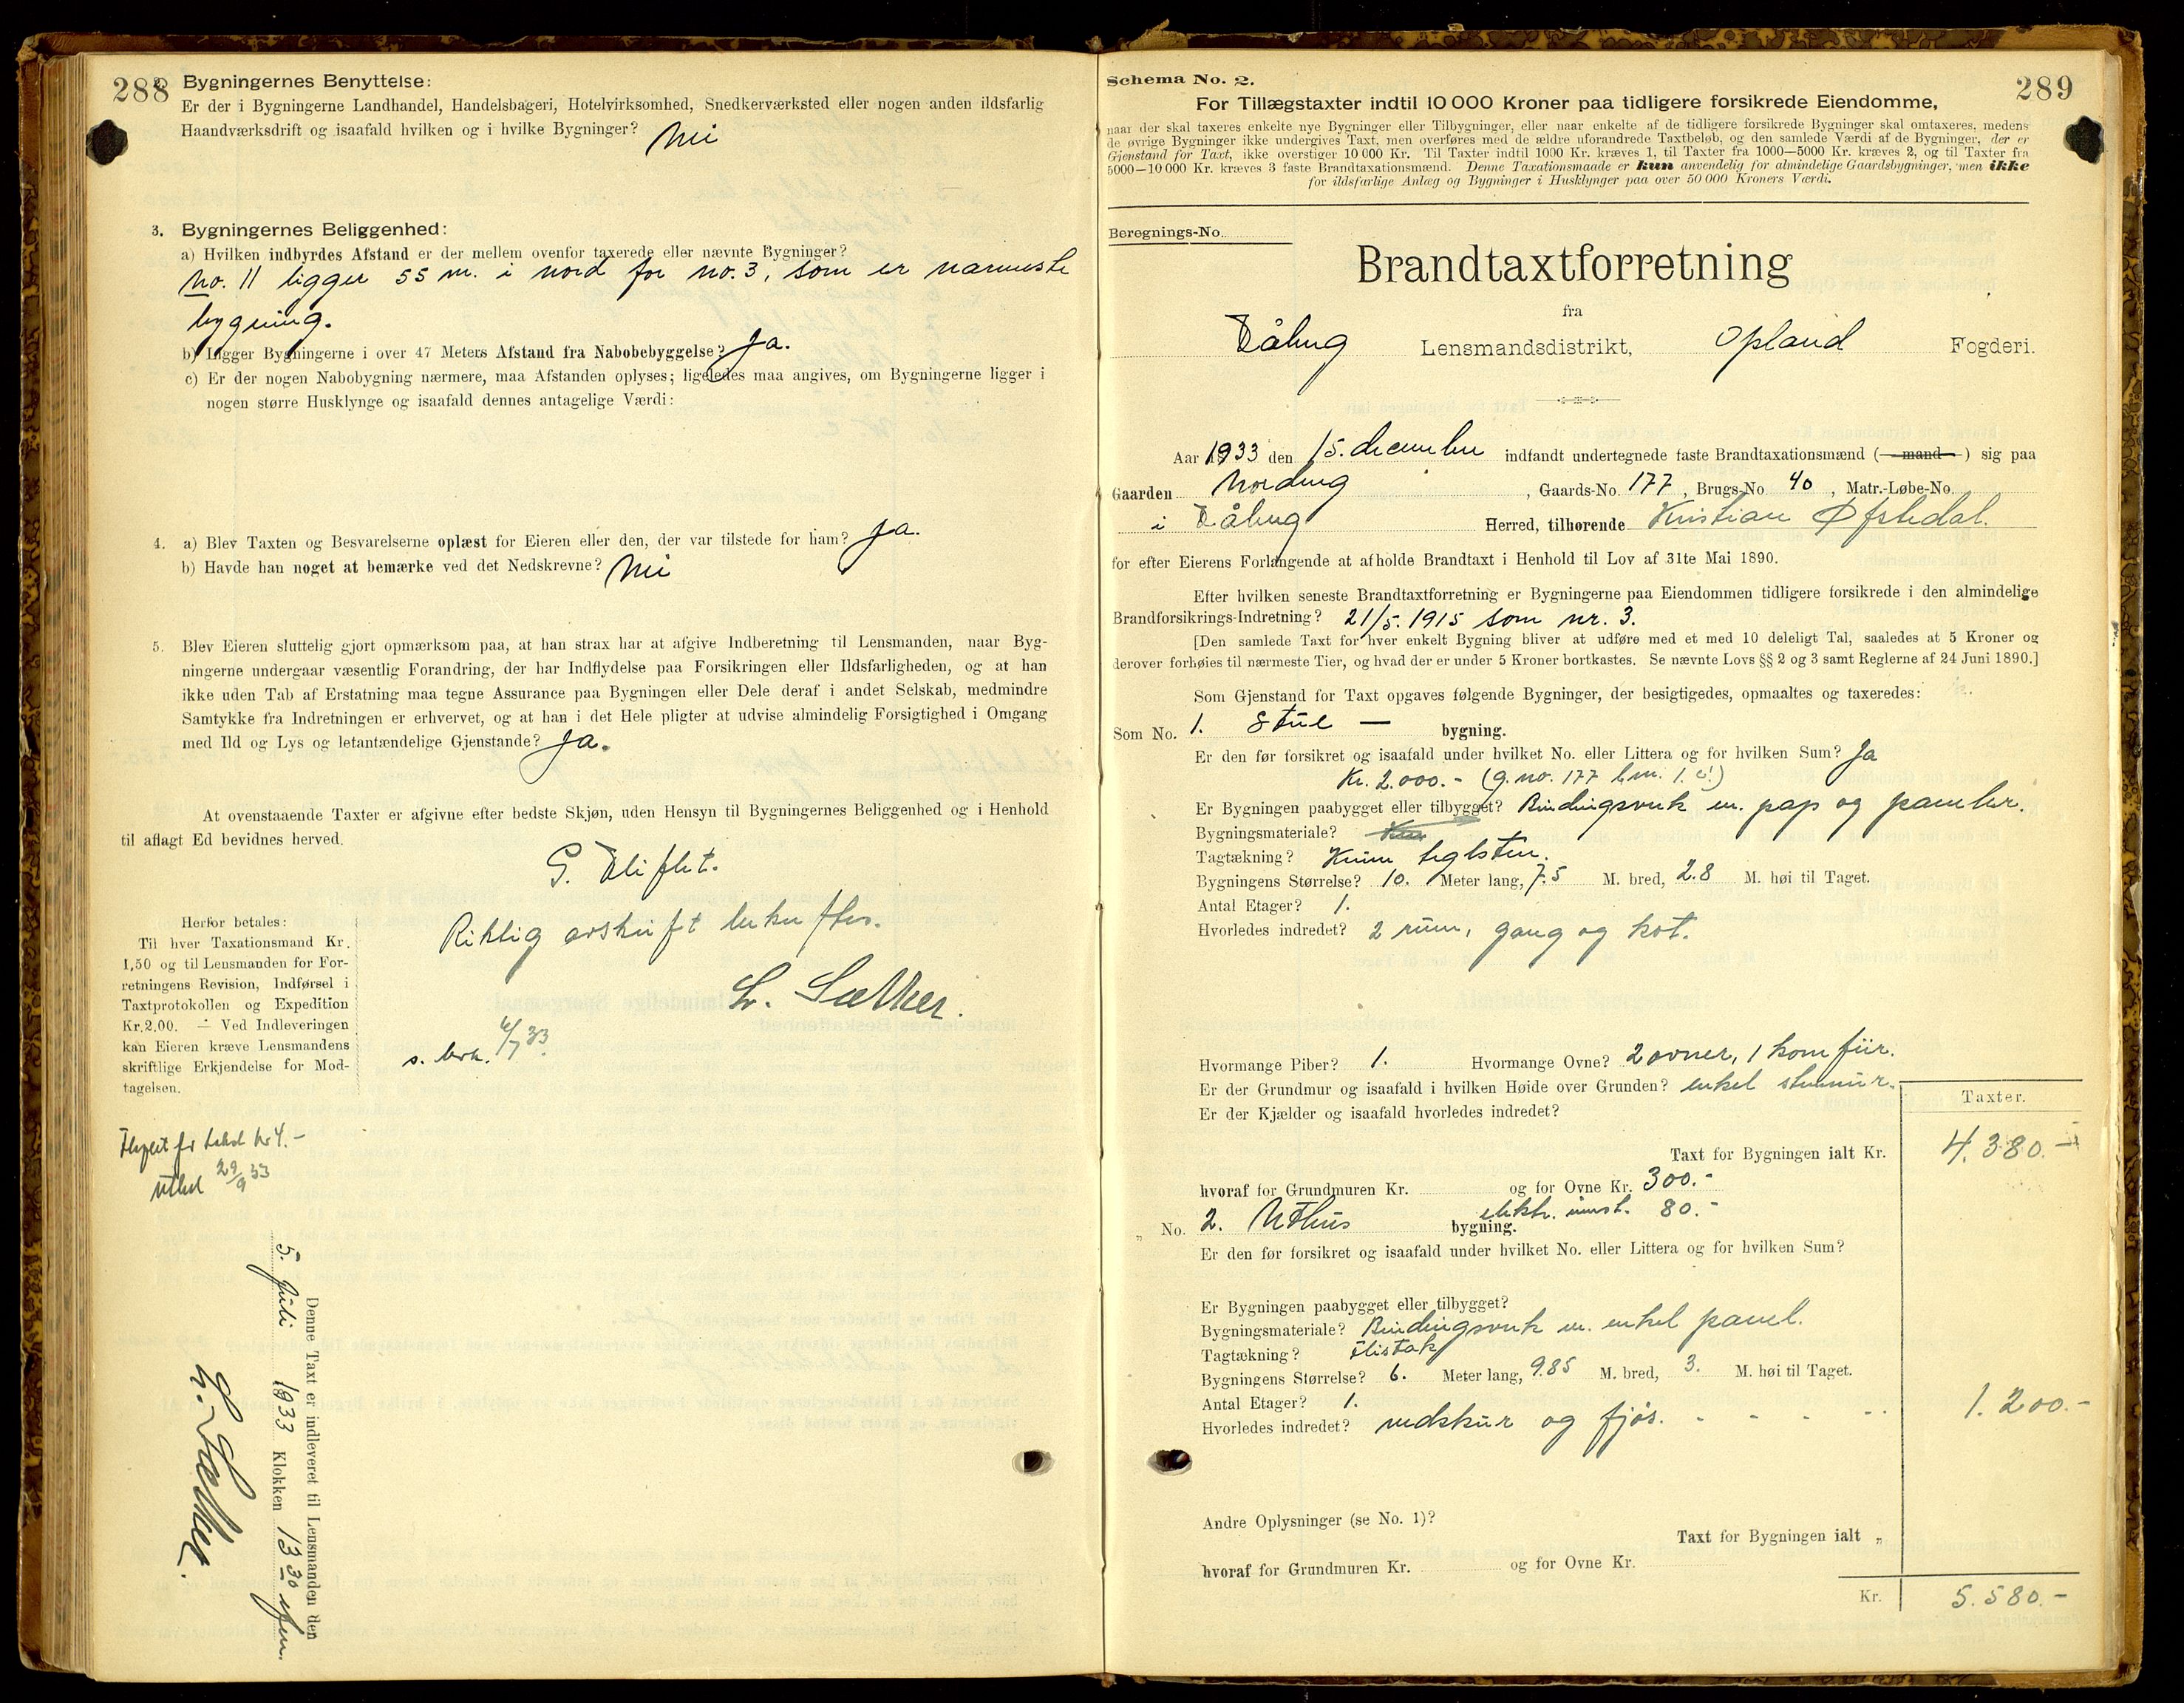 288
2. Bygningernes Benyttelse:
Er der i Bygningerne Landhandel, Handelsbageri, Hotelvirksomhed, Snedkerværksted eller nogen anden ildsfarlig
Haandværksdrift og isaafald hvilken og i hvilke Bygninger? Nei
3. Bygningernes Beliggenhed:
a) Hvilken indbyrdes Afstand er der mellem ovenfor taxerede eller nævnte Bygninger?
No. 11 ligger 55 m. i nord for no. 3, som er nærmeste
bygning.
b) Ligger Bygningerne i over 47 Meters Afstand fra Nabobebyggelse? Ja.
c) Er der nogen Nabobygning nærmere, maa Afstanden oplyses; ligeledes maa angives, om Bygningerne ligger i
nogen større Husklynge og isaafald dennes antagelige Værdi:
4. a) Blev Taxten og Besvarelserne oplæst for Eieren eller den, der var tilstede for ham? Ja.
b) Havde han noget at bemærke ved det Nedskrevne? Nei
5. Blev Eieren sluttelig gjort opmærksom paa, at han strax har at afgive Indberetning til Lensmanden, naar Byg-
ningerne undergaar væsentlig Forandring, der har Indflydelse paa Forsikringen eller Ildsfarligheden, og at han
ikke uden Tab af Erstatning maa tegne Assurance paa Bygningen eller Dele deraf i andet Selskab, medmindre
Samtykke fra Indretningen er erhvervet, og at han i det Hele pligter at udvise almindelig Forsigtighed i Omgang
med Ild og Lys og letantændelige Gjenstande? Ja.
At ovenstaaende Taxter er afgivne efter bedste Skjøn, uden Hensyn til Bygningernes Beliggenhed og i Henhold
til aflagt Ed bevidnes herved.
G. Fliflet.
Riktig avskrift bekreftes.
L. Sætker.
s. brk. 6/7 33.
Herfor betales:
Til hver Taxationsmand Kr.
1,50 og til Lensmanden for For-
retningens Revision, Indførsel i
Taxtprotokollen og Expedition
Kr. 2.00. — Ved Indleveringen
kan Eieren kræve Lensmandens
skriftlige Erkjendelse for Mod-
tagelsen.
kr 4.-
29/9 33
Denne Taxt er indleveret til Lensmanden den
5. juli 1933 Klokken 13 30 efm.
L. Sætker.
289
Schema No. 2.
For Tillægstaxter indtil 10 000 Kroner paa tidligere forsikrede Eiendomme,
naar der skal taxeres enkelte nye Bygninger eller Tilbygninger, eller naar enkelte af de tidligere forsikrede Bygninger skal omtaxeres, medens
de øvrige Bygninger ikke undergives Taxt, men overføres med de ældre uforandrede Taxtbeløb, og den samlede Værdi af de Bygninger, der er
Gjenstand for Taxt, ikke overstiger 10 000 Kr. Til Taxter indtil 1000 Kr. kræves 1, til Taxter fra 1000—5000 Kr. kræves 2, og til Taxter fra
5000—10 000 Kr. kræves 3 faste Brandtaxationsmænd. Denne Taxationsmaade er kun anvendelig for almindelige Gaardsbygninger, men ikke
for ildsfarlige Anlæg og Bygninger i Husklynger paa over 50 000 Kroners Værdi.
Beregnings-No.
Brandtaxtforretning
fra
Fåberg Lensmandsdistrikt, Opland Fogderi.
Aar 1933 den 15. december indfandt undertegnede faste Brandtaxationsmænd (mand) sig paa
Gaarden Nordeng, Gaards-No. 177, Brugs-No. 40, Matr.-Løbe-No.
i Fåberg Herred, tilhørende Kristian Øfstedal.
for efter Eierens Forlangende at afholde Brandtaxt i Henhold til Lov af 31te Mai 1890.
Efter hvilken seneste Brandtaxtforretning er Bygningerne paa Eiendommen tidligere forsikrede i den almindelige
Brandforsikrings-Indretning? 21/5. 1915 som nr. 3.
[Den samlede Taxt for hver enkelt Bygning bliver at udføre med et med 10 deleligt Tal, saaledes at 5 Kroner og
derover forhøies til nærmeste Tier, og hvad der er under 5 Kroner bortkastes. Se nævnte Lovs §§ 2 og 3 samt Reglerne af 24 Juni 1890.]
Som Gjenstand for Taxt opgaves følgende Bygninger, der besigtigedes, opmaaltes og taxeredes:
Som No. 1. Stue — bygning.
Er den før forsikret og isaafald under hvilket No. eller Littera og for hvilken Sum? Ja
Kr. 2.000.- (g. no. 177 b.nr. 1. c!)
Er Bygningen paabygget eller tilbygget? Bindingsverk m. pap og paneler.
Bygningsmateriale?
Tagtækning? Krum teglsten.
Bygningens Størrelse? 10. Meter lang, 7.5 M. bred, 2.8 M. høi til Taget.
Antal Etager? 1.
Hvorledes indredet? 2 rum, gang og kot.
Hvormange Piber? 1. Hvormange Ovne? 2 ovner, 1 komfür.
Er der Grundmur og isaafald i hvilken Høide over Grunden? enkel stenmur.
Er der Kjælder og isaafald hvorledes indredet?
Taxter.
Taxt for Bygningen ialt Kr. 4.380.-
hvoraf for Grundmuren Kr. og for Ovne Kr. 300.-
elektr. innst. 80.-
" No. 2. Uthus bygning.
Er den før forsikret og isaafald under hvilket No. eller Littera og for hvilken Sum?
Er Bygningen paabygget eller tilbygget?
Bygningsmateriale? Bindingsverk m. enkel panel.
Tagtækning? Flistak
Bygningens Størrelse? 6. Meter lang, 9.85 M. bred, 3. M. høi til Taget.
Antal Etager? 1.
Hvorledes indredet? vedskur og fjøs. - - - - 1.200.-
Andre Oplysninger (se No. 1)?
Taxt for Bygningen ialt "
hvoraf for Grundmuren Kr. og for Ovne Kr.
Kr. 5.580.-